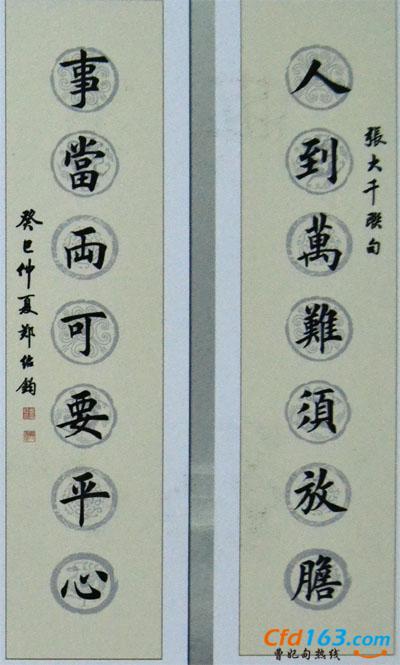 人到萬難須放膽
張大千联句
事當両可要平心
癸巳仲夏郑佑鈞
Cfd163.com
曹妃甸热线